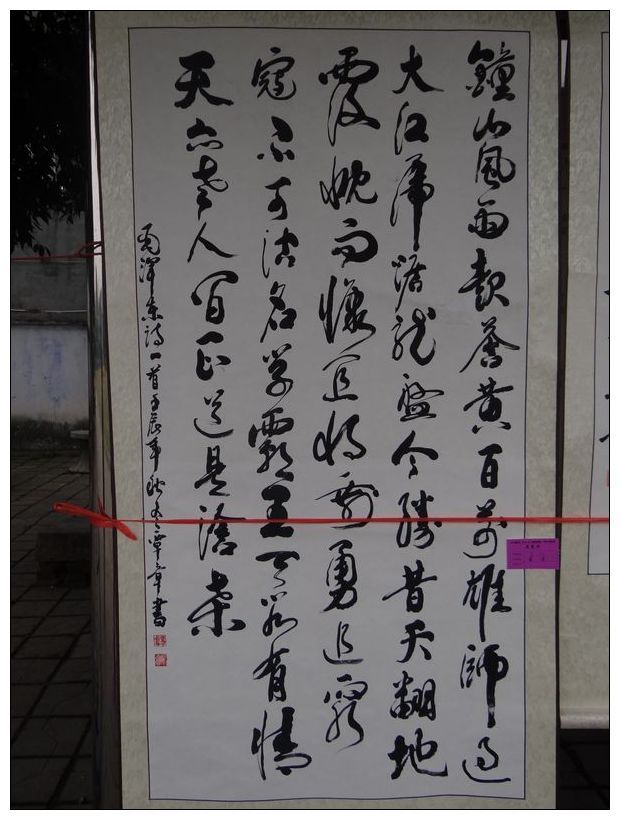 鐘山風雨起蒼黄百萬雄師过
大江虎踞龙盘今勝昔天翻地
覆慨而慷宜將剩勇追窮
寇不可沽名学霸王天若有情
天亦老人间正道是滄桑
毛澤东诗一首壬辰年秋冬覃章書